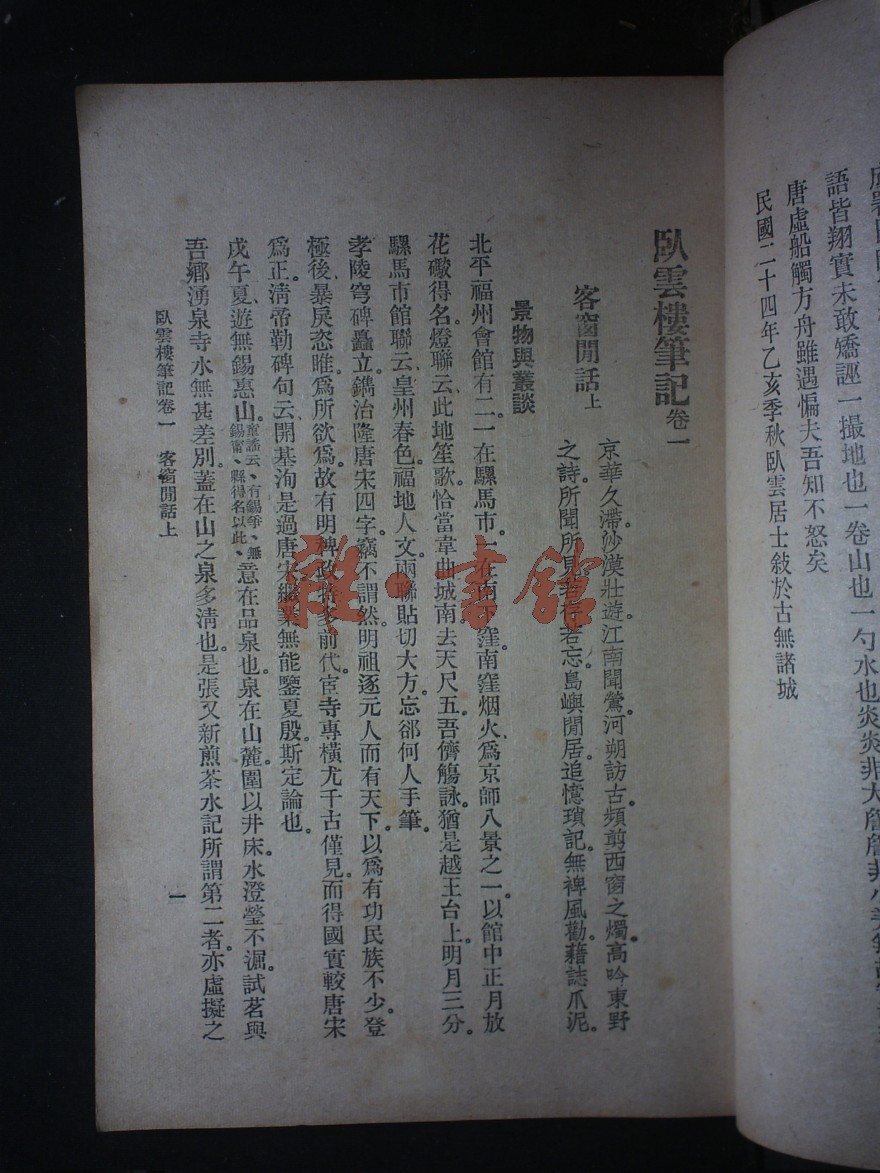 語皆翔實未敢矯誣一撮地也一卷山也一勺水也炎炎非大詹詹非小
唐虛船觸方舟雖遇惼夫吾知不怒矣
民國二十四年乙亥季秋臥雲居士敍於古無諸城
臥雲樓筆記卷一
京華久滯。沙漠壯遊。江南聞鶯。河朔訪古。頻剪西窗之燭。高吟東野
之詩。所聞所見。若存若忘。島嶼閒居。追憶瑣記。無裨風勸。藉誌爪泥。
客窗閒話上
景物與叢談
北平福州會館有二。一在騾馬市、一在南下窪。南窪烟火、爲京師八景之一。以館中正月放
花礮得名。燈聯云、此地笙歌。恰當韋曲城南。去天尺五。吾儕觴詠。猶是越王台上。明月三分。
騾馬市館聯云、皇州春色。福地人文。兩聯貼切大方。忘郤何人手筆。
孝陵穹碑矗立。鐫治隆唐宋四字。竊不謂然。明祖逐元人而有天下。以爲有功民族不少。登
極後、暴戾恣睢。爲所欲爲。故有明稗政。許多前代。宦寺專橫。尤千古僅見。而得國實較唐宋
爲正。清帝勒碑句云、開基洵是過唐宋。繼業無能鑒夏殷。斯定論也。
戊午夏、遊無錫惠山。童謠云、有錫爭、無錫甯、縣得名以此、意在品泉也。泉在山麓。圍以井床。水澄瑩不淈。試茗與
吾鄉湧泉寺水無甚差別。蓋在山之泉多清也。是張又新煎茶水記所謂第二者。亦虛擬之
臥雲樓筆記卷一　客窗閒話上
一
雜·書館